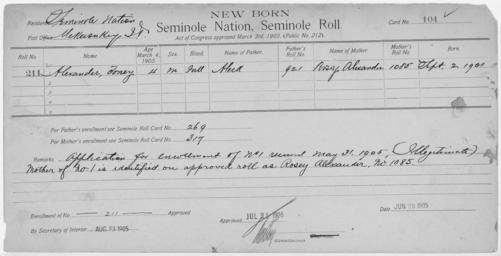 NEW BORN
Residence Seminole Nation Card No. 104
Post Office Wekwokey, I.T. Seminole Nation, Seminole Roll.
Act of Congress approved March 3rd, 1905. (Public No. 212).
Roll No. Name Age March 4, 1905. Sex. Blood. Name of Father. Father's Roll No. Name of Mother Mother's Roll No. Born.
211 1 Alexander, Toney 4 M Full Aleck 921 Rosey Alexander 1085 Sept. 2, 1901
2
3
4
5
Name
For Father's enrollment see Seminole Roll Card No. 269
For Mother's enrollment see Seminole Roll Card No. 317
Remarks Application for enrollment of No 1 recd May 31, 1905, (Illegitimate)
Mother of No 1 is identified on approved roll as Rosey Alexander, No 1085
Enrollment of No. 211 Approved Approved JUL 22 1905 Date JUN 29 1905
By Secretary of Interior AUG 23 1905 COMMISSIONER